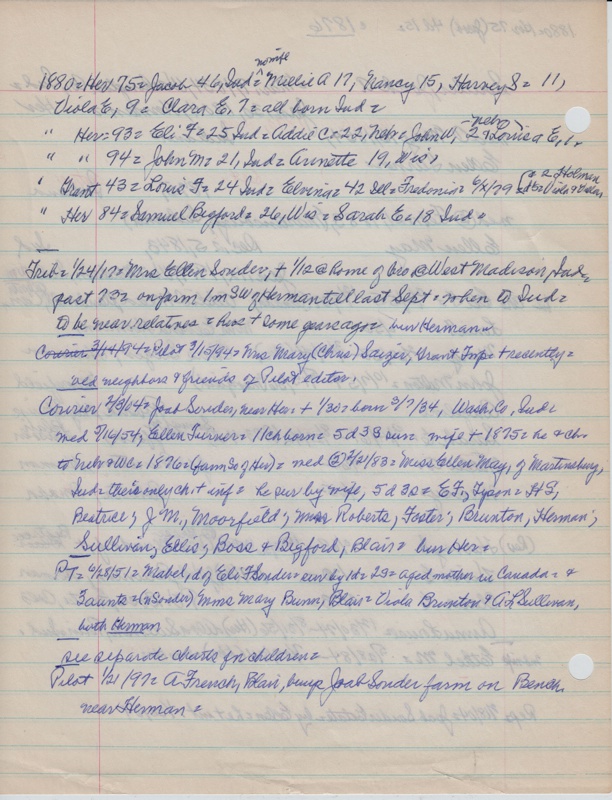 no wife
1880= Her 75= Jacob 46, Ind= Millie A 17, Nancy 15, Harvey S= 11,
Viola E, 9= Clara E, 7= all born Ind=
" Her= 93= Eli F= 25 Ind= Addie C= 22, Nebr= John W, 2 + Louisa E, 1,
" " 94= John M= 21, Ind= Annette 19, Wis,
" Grant 43= Louis F= 24 Ind= Elvina= 42 Ill= Fredonia= 6/X/79 = 2 Holman
" Her 84= Samuel Bigford= 26, Wis= Sarah E= 18 Ind=
Trib= 1/24/17= Mrs Ellen Sonder, + 1/12 @ home of bro @ West Madison, Ind=
past 73= on farm 1m SW of Herman till last Sept= when to Ind=
to be near relatives= hus + some years ago= bur Herman=
Courier 3/14/94= Pilot 3/15/94= Mrs Mary (Chas) Saezer, Grant Twp + recently=
old neighbors & friends of Pilot editor.
Courier 2/3/04= Jacob Sonder, near Her + 1/30= born 3/7/34, Wash Co, Ind=
med 7/16/54, Ellen Turner= 11 ch born= 5 d 3 s sur wife + 1875= he & ch=
to Nebr & WC= 1876= (farm So of Her)= med @ 2/21/83= Miss Ellen May, of Martinsburg,
Ind= their only ch + inf= he sur by wife, 5 d 3 s= E F, Tyson= H S,
Beatrice; J M, Moorfield; Mmes Roberts, Foster; Brunton, Herman;
Sullivan, Ellis; Boss & Bigford, Blair= bur Her=
PT= 6/28/51= Mabel, d of Eli F Sonder= sur by 1 d= 2 s= aged mother in Canada= &
3 aunts= (n Sonder) Mmes Mary Bunn, Blair= Viola Brunton & A L Sullivan,
both Herman
see separate charts for children=
Pilot 1/21/97= A French, Blair, buys Jacob Sonder farm on Bench
near Herman=